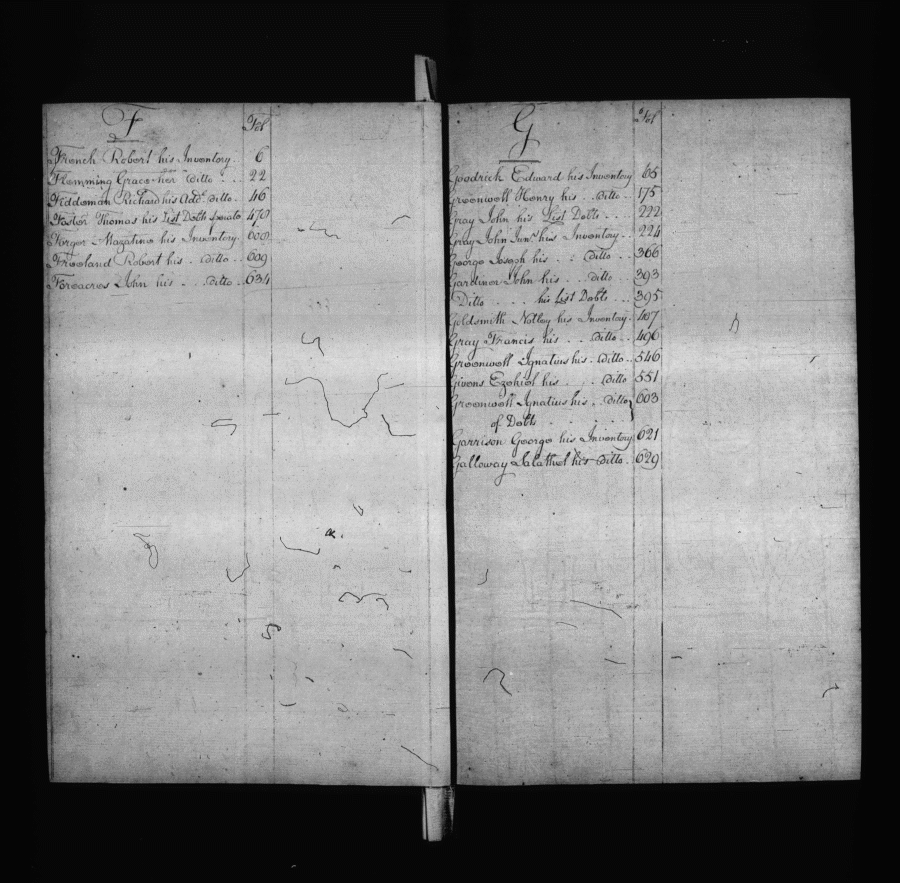 F
Fol
French Robert his Inventory . 6
Flemming Grace her Ditto . . . 22
Fiddeman Richard his Add.l ditto . . 46
Foster Thomas his List Debts sperate 470
Mazatine his Inventory . 608
Freeland Robert his . Ditto . . 609
Foreacres John his . . . Ditto . . 634
G
Fol
Goodrich Edward his Inventory 65
Greenwell Henry his . . Ditto . . 175
Gray John his List Debts . . . 222
Gray John Jun.r his Inventory . . 224
George Joseph his . . : Ditto . . 366
Gardiner John his . . . Ditto . . 393
Ditto . . . . his List Debts . . . 395
Goldsmith Notley his Inventory . 407
Gray Francis his . . . Ditto . . 496
Greenwell Ignatius his . Ditto . . 546
Givens Ezekiel his . . . . Ditto . . 551
Greenwell Ignatius his . Ditto } 603
of Debts . . . .
Garrison George his Inventory 621
Galloway Salathiel his Ditto . . 629